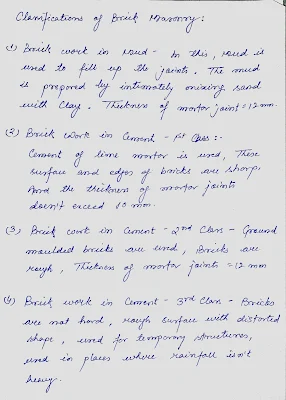 Classifications of Brick Masonry :
(1) Brick work in Mud - In this, Mud is
used to fill up the joints. The mud
is prepared by intimately mixing sand
with Clay. Thickness of mortar joint = 12 mm.
(2) Brick Work in Cement - 1st Class :-
Cement of lime mortar is used, These
surface and edges of bricks are sharp,
And the thickness of mortar joints
doesn't exceed 10 mm.
(3) Brick work in Cement - 2nd Class - Ground
moulded bricks are used, Bricks are
rough, Thickness of mortar joints = 12 mm
(4) Brick work in Cement - 3rd Class - Bricks
are not hard, rough surface with distorted
shape, used for temporary structures,
used in places where rainfall isn't
heavy.